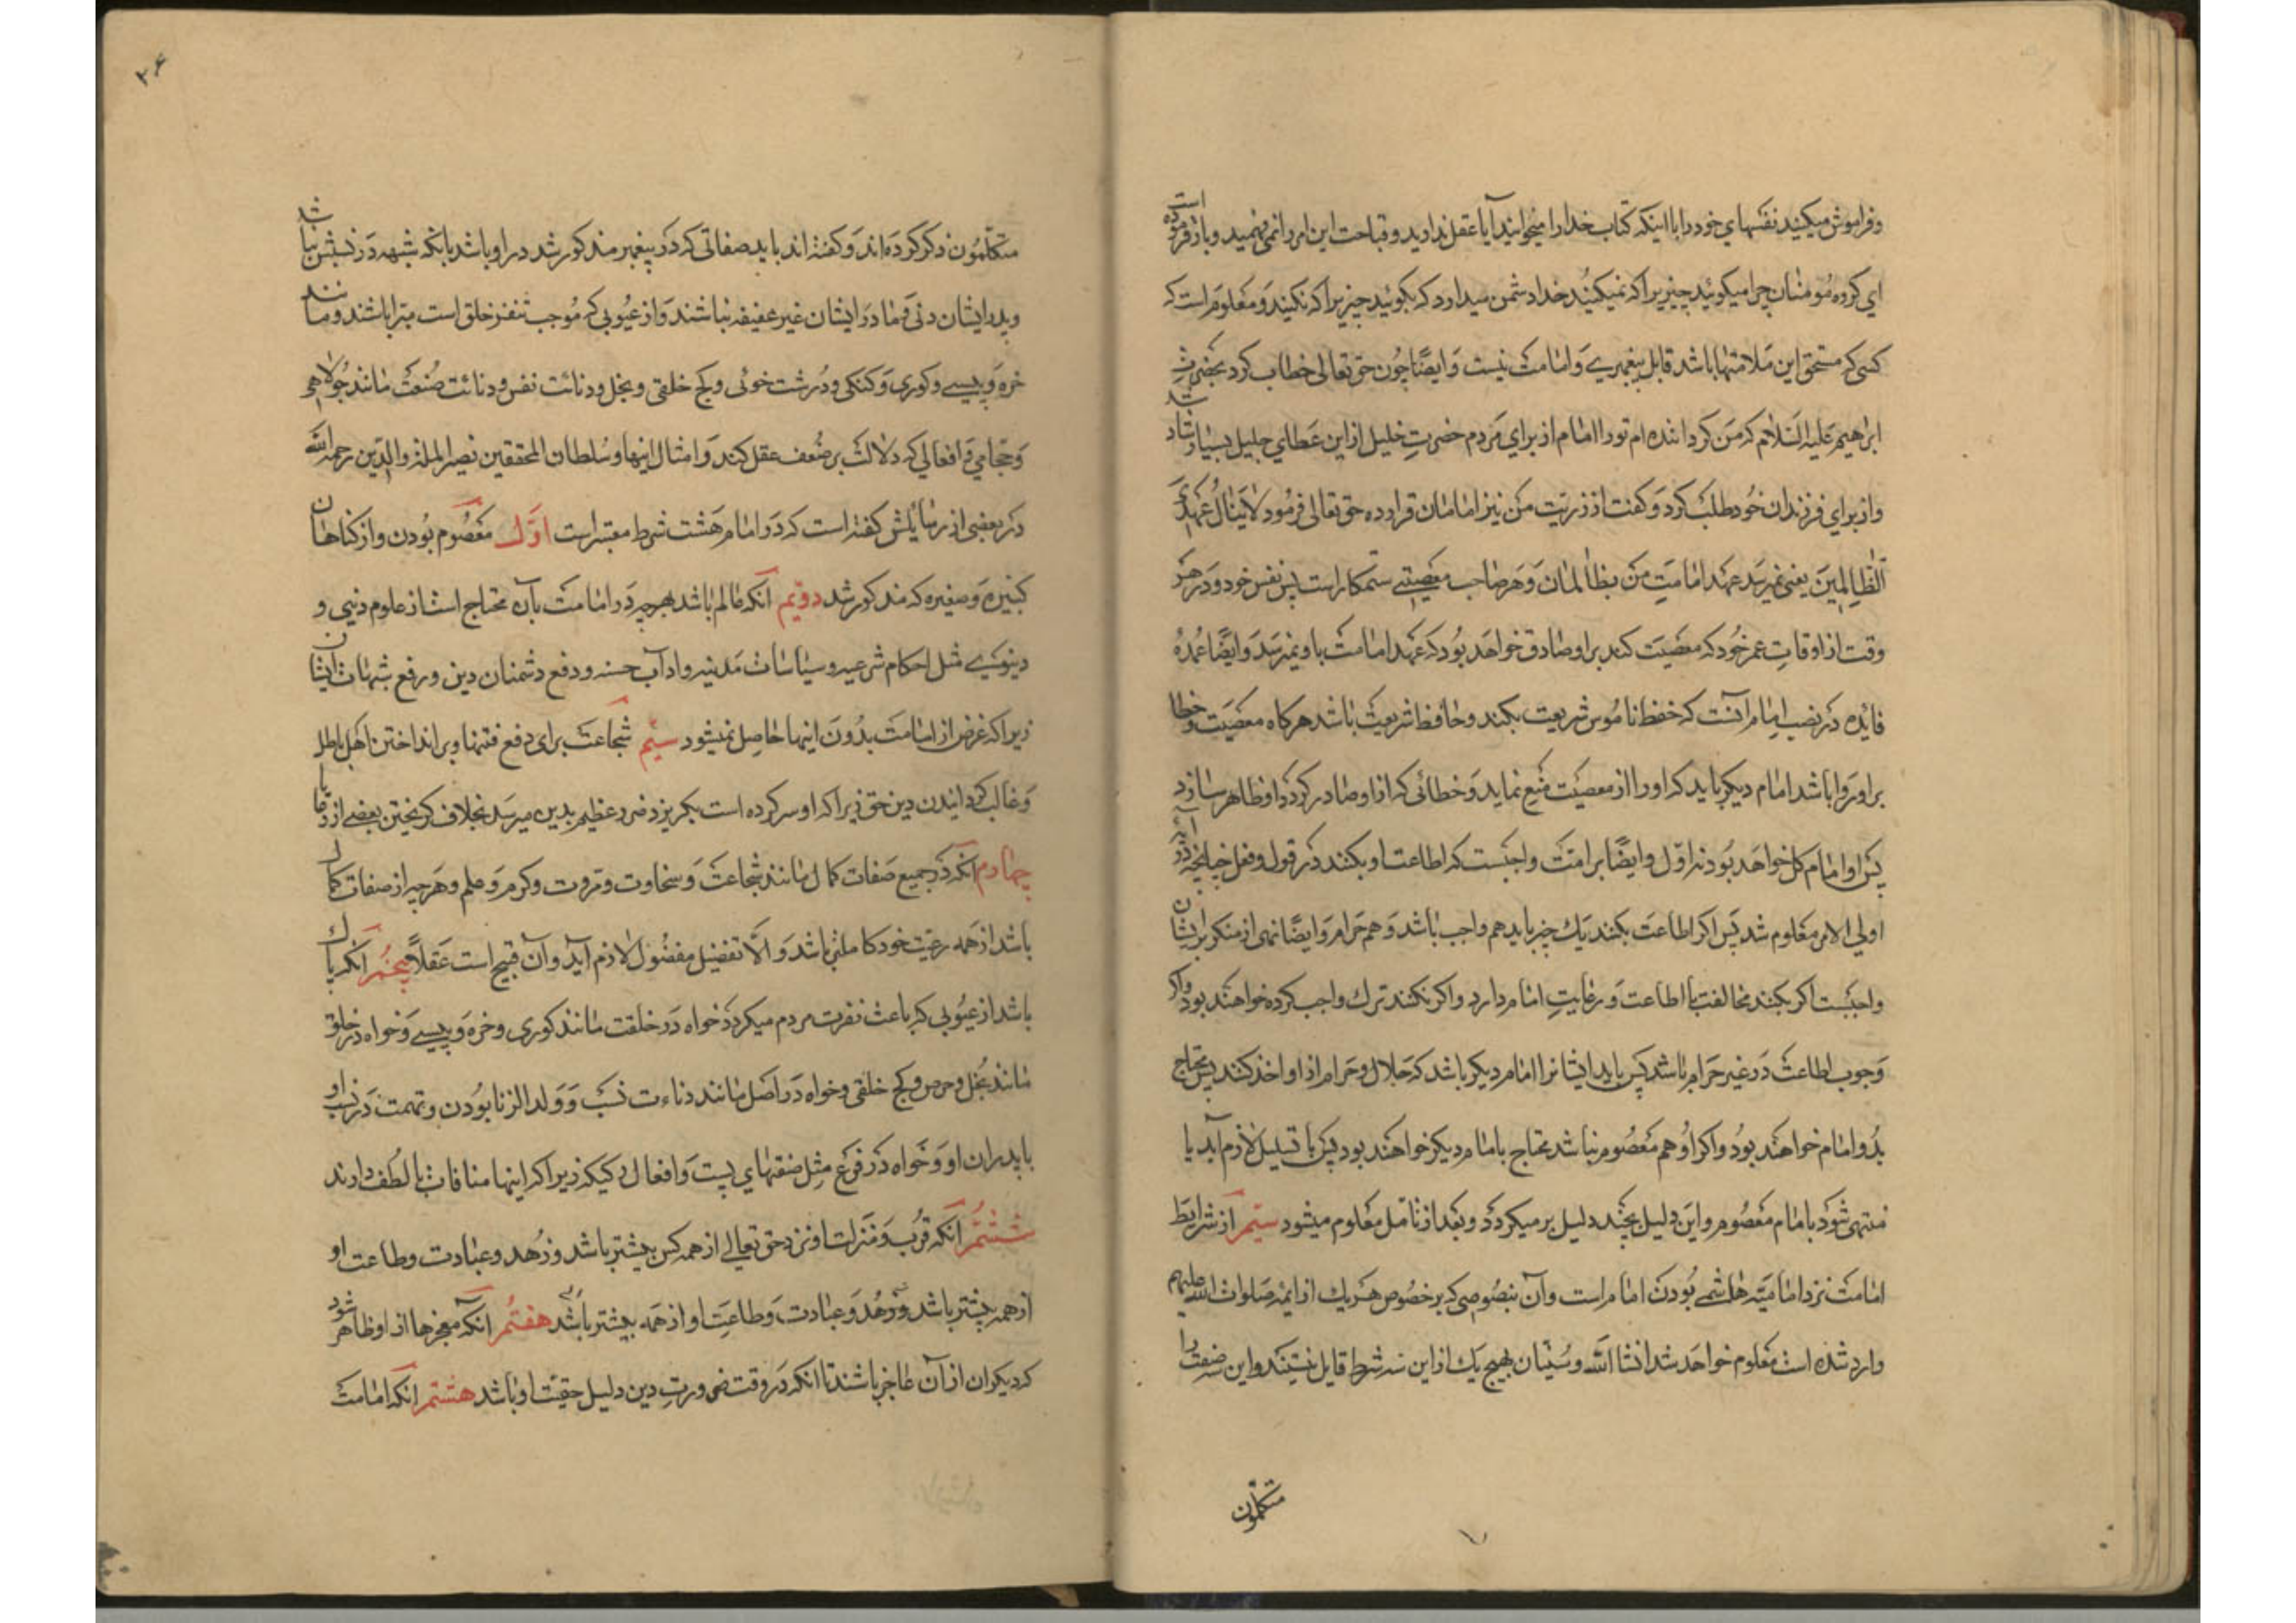 و فراموش میکنید نفسهای خود را با اینکه کتاب خدا را میخوانید آیا عقل ندارید و قباحت این امر را نمی فهمید و باز فرموده است
ای کروه مومنان چرا میکوئید چیزیرا که نمیکنید خدا دشمن میدارد که بکوئید چیزیرا که نکنید و معلوم است که
کسی که مستحق این ملامتها باشد قابل پیغمبری و امامت نیست و ایضًا چون حق تعالی خطاب کرد بحضرت
ابراهیم علیه السلام که من کرداننده ام تو را امام از برای مردم حضرت خلیل از این عطای جلیل بسیار شاد شد
و از برای فرزندان خود طلب کرد و کفت از ذریت من نیز امامان قرار ده حق تعالی فرمود لا ینال عهدی
الظالمین یعنی نمیرسد عهد امامت من بظالمان و هر صاحب معصیتی ستمکار است بر نفس خود و در هر
وقت از اوقات عمر خود که معصیت کند بر او صادق خواهد بود که عهد امامت باو نمیرسد و ایضًا عمده
فایده در نصب امام آنست که حفظ ناموس شریعت بکند و حافظ شریعت باشد هرکاه معصیت و خطا
بر او روا باشد امام دیکر باید که او را از معصیت منع نماید و خطائی که از او صادر کردد او ظاهر سازد
پس او امام کل خواهد بود نه اول و ایضًا بر امت واجبست که اطاعت او بکنند در قول و فعل چنانچه در آیه
اولی الامر معلوم شد پس اکر اطاعت بکنند یک چیز باید هم واجب باشد و هم حرام و ایضًا نهی از منکر بر ایشان
واجبست اکر بکنند مخالفت با اطاعت و رعایت امام دارد و اکر نکنند ترک واجب کرده خواهند بود و اکر
وجوب اطاعت در غیر حرام باشد پس باید ایشانرا امام دیکر باشد که حلال و حرام از او اخذ کنند پس محتاج
بدو امام خواهند بود و اکر او هم معصوم نباشد محتاج بامام دیکر خواهند بود پس یا تسلسل لازم آید یا
منتهی شود بامام معصوم و این دلیل بچند دلیل برمیکردد و بعد از تامل معلوم میشود سیّم از شرایط
امامت نزد امامیّه هاشمی بودن امام است و آن بنصوصی که بر خصوص هر یک از ایمه صلوات الله علیهم
وارد شده است معلوم خواهد شد انشا الله و سنّیان بهیچ یک از این سه شرط قایل نیستند و این صفت را
متکلّمون
۳۶
متکلّمون ذکر کرده اند و کفته اند باید صفاتی که در پیغمبر مذکور شد در او باشد بانکه شبهه در نسبش نباشد
و پدر ایشان دنی و مادر ایشان غیر عفیفه نباشند و از عیوبی که موجب تنفر خلق است مبرا باشند و مانند
خره و پیسی و کوری و کنکی و درشت خوئی و کج خلقی و بخل و دنائت نفس و دنائت صنعت مانند جولاهی
و حجامی و افعالی که دلالت بر ضعف عقل کند و امثال اینها و سلطان المحققین نصیر الملة و الدّین رحمه الله
در بعضی از رسائلش کفته است که در امام هشت شرط معتبر است اوّل معصوم بودن و از کناهان
کبیره و صغیره که مذکور شد دویّم آنکه عالم باشد بهر چه در امامت بآن محتاج است از علوم دینی و
دنیوی مثل احکام شرعیه و سیاسات مدنیه و اداب حسنه و دفع دشمنان دین و رفع شبهات ایشان
زیرا که غرض از امامت بدون اینها حاصل نمیشود سیّم شجاعت برای دفع فتنها و برانداختن اهل باطل
و غالب کردانیدن دین حق زیرا که او سرکرده است بکریزد ضرر عظیم بدین میرسد بخلاف کریختن بعضی از رعایا
چهارم آنکه در جمیع صفات کمال مانند شجاعت و سخاوت و مروت و کرم و علم و هر چه از صفات کمال
باشد از همه رعیت خود کاملتر باشد و الّا تفضیل مفضول لازم آید و آن قبیح است عقلاً پنجم آنکه پاک
باشد از عیوبی که باعث نفرت مردم میکردد خواه در خلقت مانند کوری و خره و پیسی و خواه در خلق
مانند بخل و حرص و کج خلقی و خواه در اصل مانند دناءت نسب و ولد الزنا بودن و تهمت در نسب او
یا پدران او و خواه در فرع مثل صنعتهای پست و افعال رکیکه زیرا که اینها منافات با لطف دارند
ششم آنکه قرب و منزلت او نزد حق تعالی از همه کس بیشتر باشد و زهد و عبادت و طاعت او
از همه بیشتر باشد و زهد و عبادت و طاعت او از همه بیشتر باشد هفتم آنکه معجزها از او ظاهر شود
که دیکران از آن عاجز باشند تا انکه در وقت ضرورت دین دلیل حقیّت او باشد هشتم انکه امامت